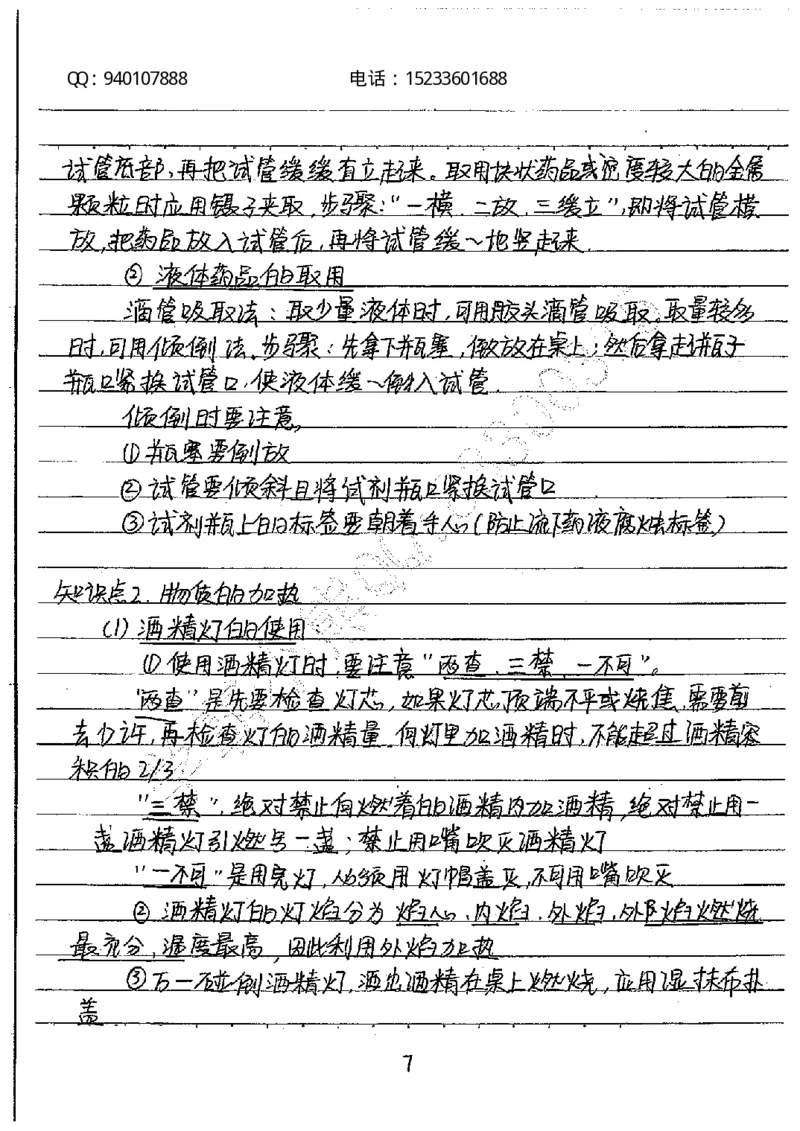 QQ：940107888 电话：15233601688
试管底部，再把试管缓缓直立起来。取用块状药品或密度较大的金属
颗粒时应用镊子夹取，步骤："一横、二放、三缓立"，即将试管横
放，把药品放入试管后，再将试管缓~地竖起来.
② 液体药品的取用
滴管吸取法：取少量液体时，可用胶头滴管吸取，取量较多
时，可用倾倒法。步骤：先拿下瓶塞，倒放在桌上；然后拿走瓶子
瓶口紧挨试管口，使液体缓~倒入试管.
倾倒时要注意，
①瓶塞要倒放
②试管要倾斜且将试剂瓶口紧挨试管口
③试剂瓶上的标签要朝着手心（防止流下药液腐蚀标签）
知识点2. 物质的加热
(1) 酒精灯的使用
①使用酒精灯时，要注意"两查、三禁、一不可"。
"两查"是先要检查灯芯，如果灯芯顶端不平或烧焦，需要剪
去少许，再检查灯的酒精量，向灯里加酒精时，不能超过酒精容
积的2/3.
"三禁"，绝对禁止向燃着的酒精内加酒精，绝对禁止用一
盏酒精灯引燃另一盏；禁止用嘴吹灭酒精灯
"一不可"是用完灯，必须用灯帽盖灭，不可用嘴吹灭
② 酒精灯的灯焰分为焰心、内焰、外焰，外焰燃烧
最充分，温度最高，因此利用外焰加热
③万一碰倒酒精灯，洒出酒精在桌上燃烧，应用湿抹布扑
盖
7